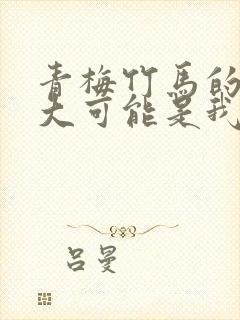 青梅竹马的
大可能是我
吕曼